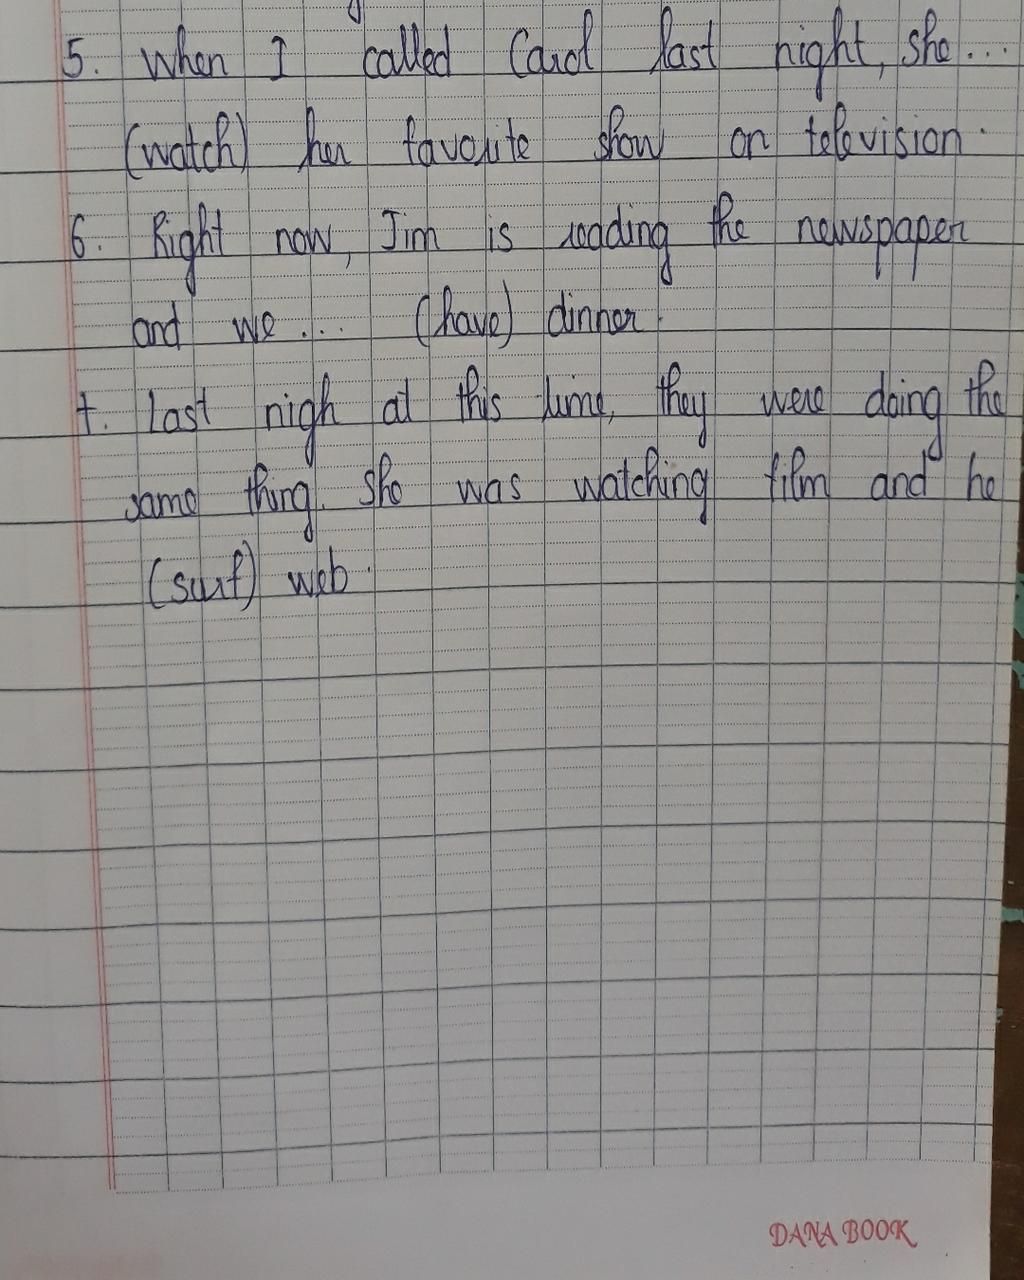 5. When I called Carol last night, she...
(watch) her favorite show on television.
6. Right now, Jim is reading the newspaper
and we.... (have) dinner.
7. Last nigh at this time, they were doing the
same thing. She was watching film and he
(surf) web.
DANA BOOK